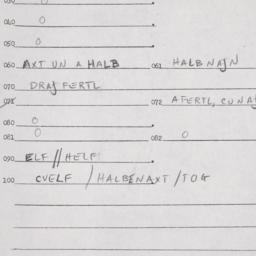 030
040 0
050 0
060 AXT UN A HALB 061 HALBNAJN
070 DRAJ FERTL
071 072 AFERTL, CUNAJ
080 0
081 0 082 0
090 ELF // HELF
100 CVELF / HALBENAXT / TOG